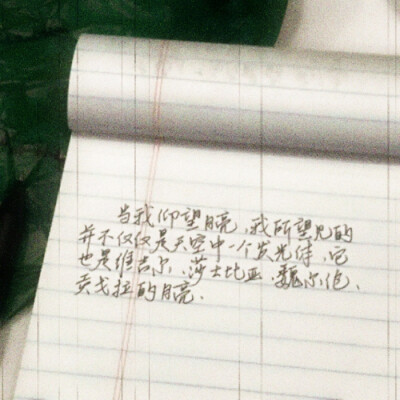 当我仰望月亮,我所望见的
并不仅仅是天空中一个发光体,它
也是维吉尔、莎士比亚、魏尔伦、
贡戈拉的月亮.